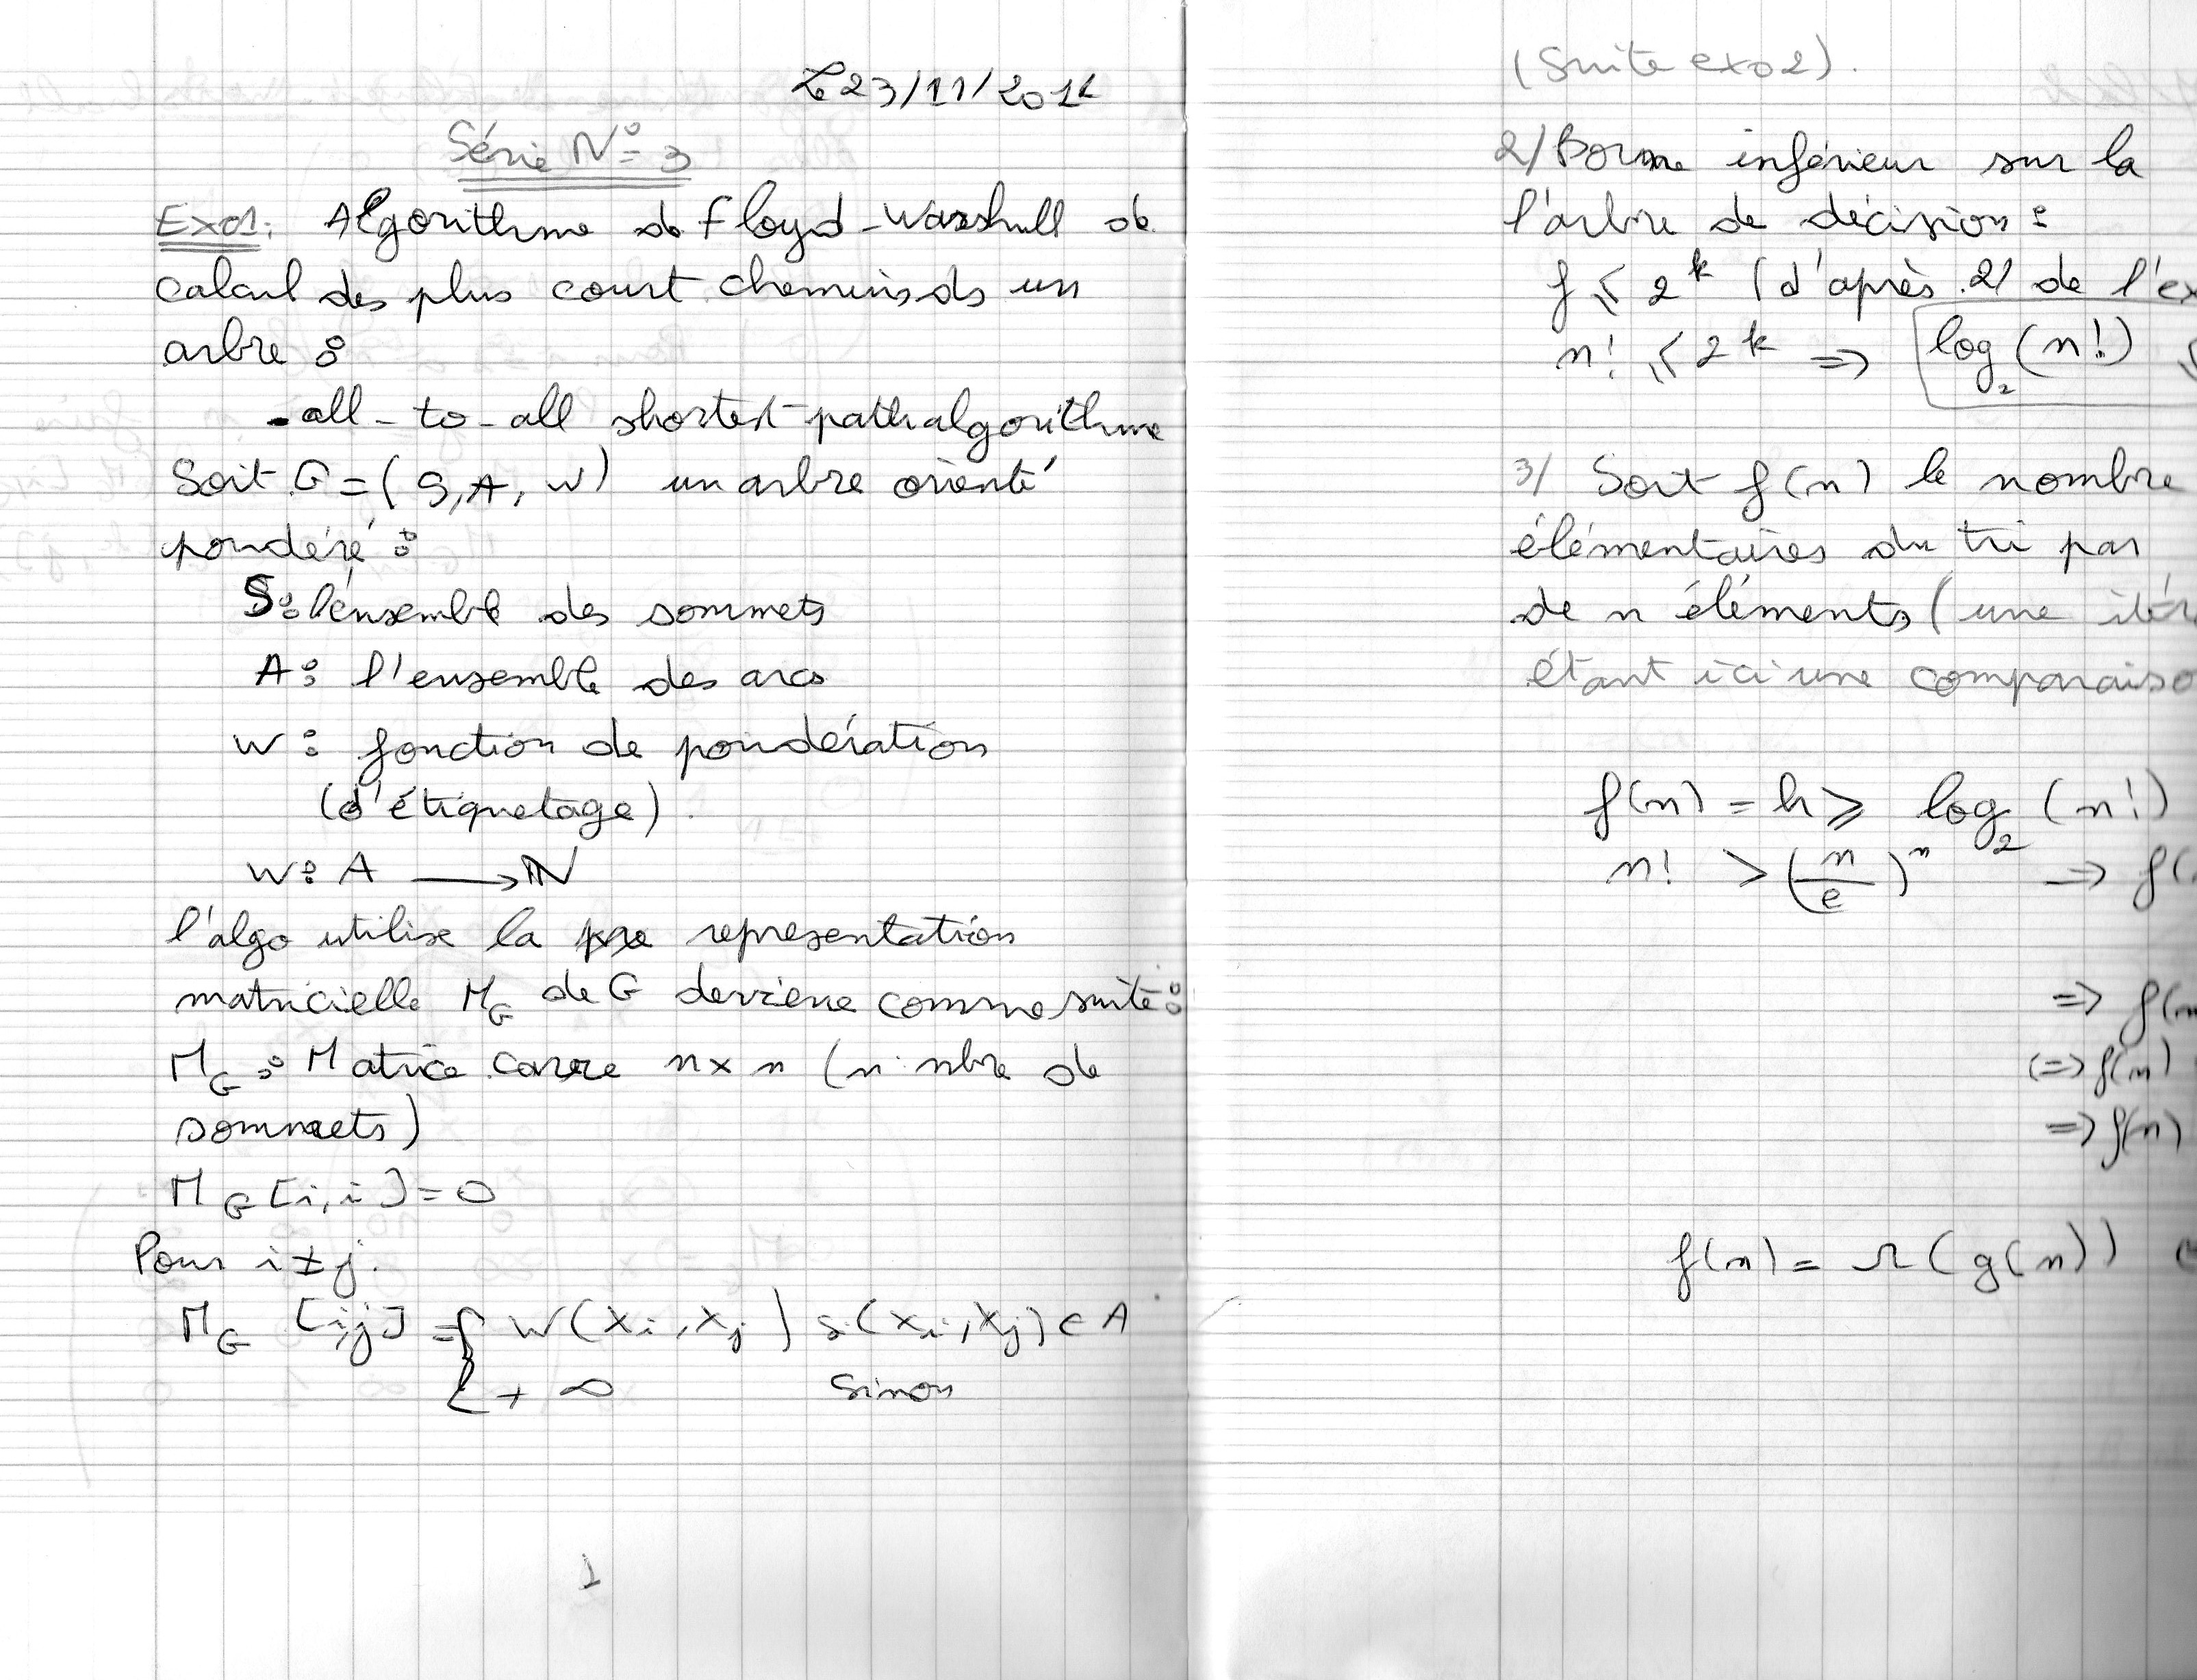 Le 23/11/2014
Série N° 3
Exo1: Algorithme de Floyd-Warshull de
calcul des plus court chemins ds un
arbre :
- all-to-all shortest-path algorithme
Soit G = (S, A, W) un arbre orienté
pondéré :
S: l'ensemble des sommets
A: l'ensemble des arcs
W: fonction de pondération
(d'étiquetage).
W: A → ℕ
l'algo utilise la representation
matricielle M_G de G comme suite:
M_G : Matrice carre n x n (n nbre de
sommets)
M_G [i, i] = 0
Pour i ≠ j.
M_G [i,j] = { W(x_i, x_j) si (x_i, x_j) ∈ A
{ + ∞ Sinon
1
(Suite exo2).
2/ Borne inférieur sur la
l'arbre de décision :
f ≤ 2^k (d'après 2/ de l'ex
n! ≤ 2^k ⇒ log₂(n!) ≤
3/ Soit f(n) le nombre
élémentaires du tri par
de n éléments (une itér
étant ici une comparaiso
f(n) = h ≥ log₂(n!)
n! > (n/e)^n ⇒ f(
⇒ f(n
(⇒ f(n)
⇒ f(n)
f(n) = Ω(g(n))